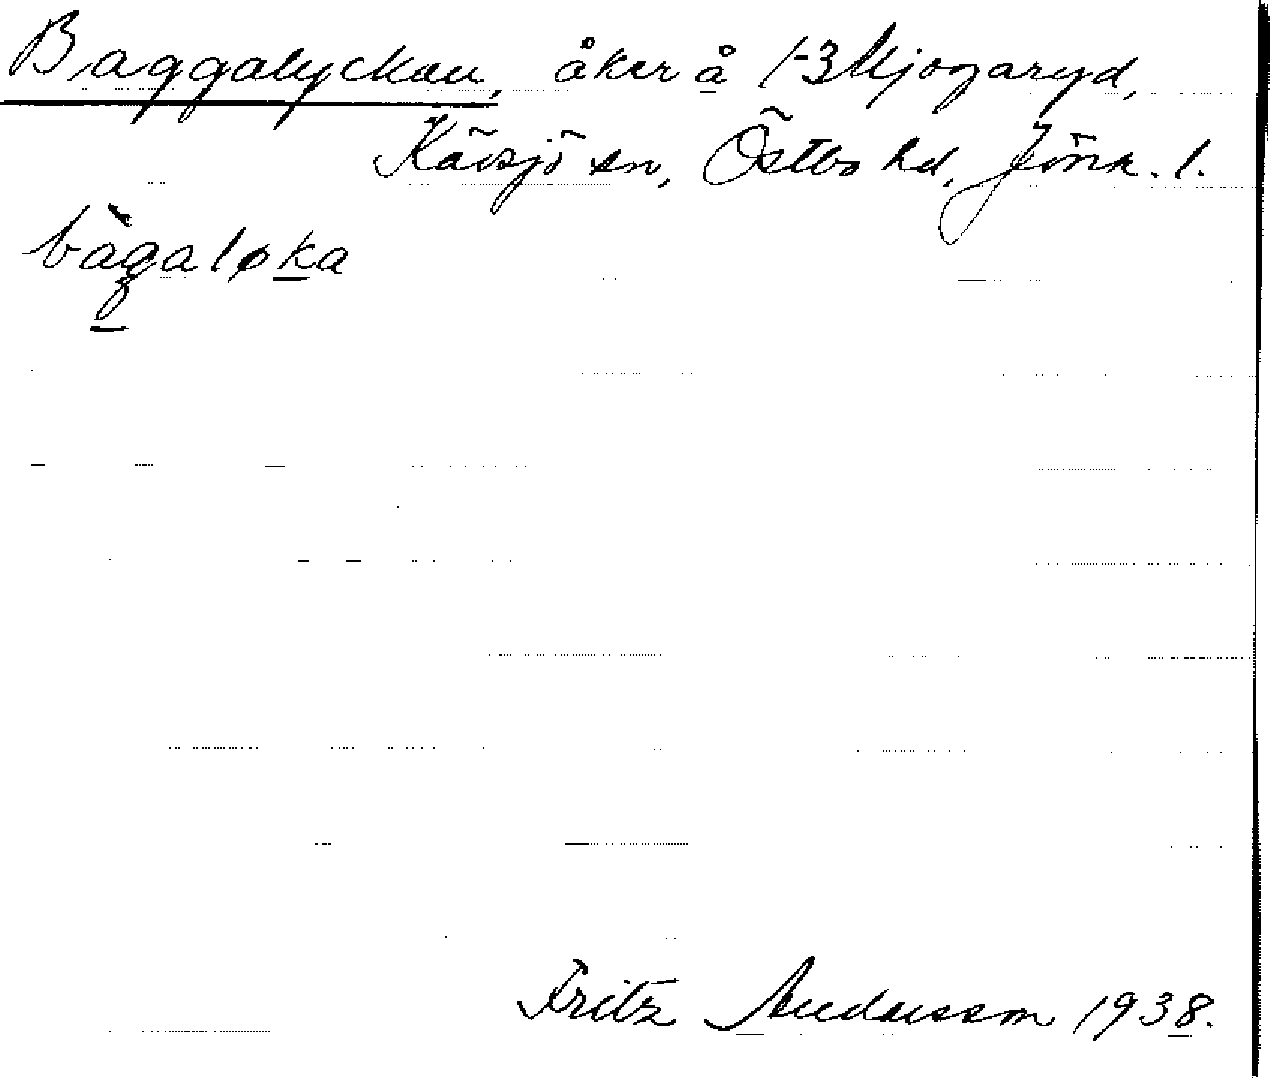 Baggalyckan, åker å 1-3 Mjogaryd,
Kävsjö sn, Östbo hd, Jönk. l.
bàgaløka
Fritz Andersson 1938.